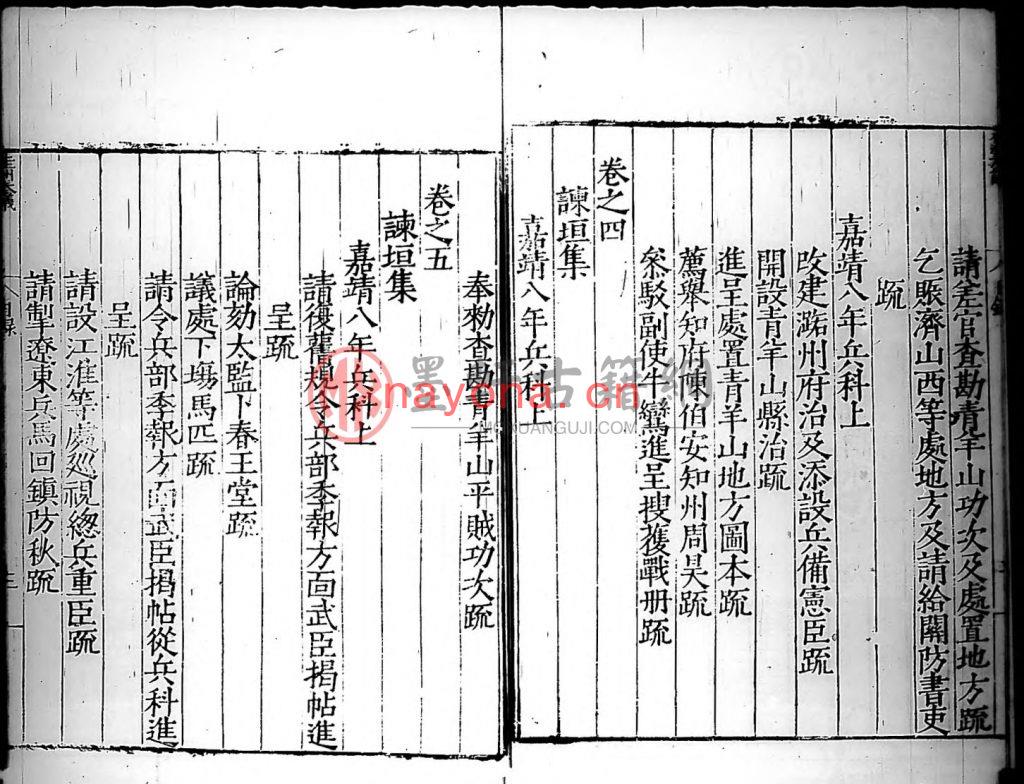 請差官查勘青羊山功次及處置地方疏
乞賑濟山西等處地方及請給關防書吏
疏
嘉靖八年兵科上
改建潞州府治及添設兵備憲臣疏
開設青羊山縣治疏
進呈處置青羊山地方圖本疏
薦舉知府陳伯安知州周昊疏
叅駁副使牛鸞進呈搜獲戰册疏
卷之四
諫垣集
嘉靖八年兵科上
奉勑查勘青羊山平賊功次疏
卷之五
諫垣集
嘉靖八年兵科上
請復舊規令兵部季報方面武臣揭帖進
呈疏
論劾太監卞春王堂疏
議處下場馬匹疏
請令兵部季報方面武臣揭帖從兵科進
呈疏
請設江淮等處廵視總兵重臣疏
請掣遼東兵馬回鎮防秋疏
目錄
三
墨 古籍網
nayona.cn